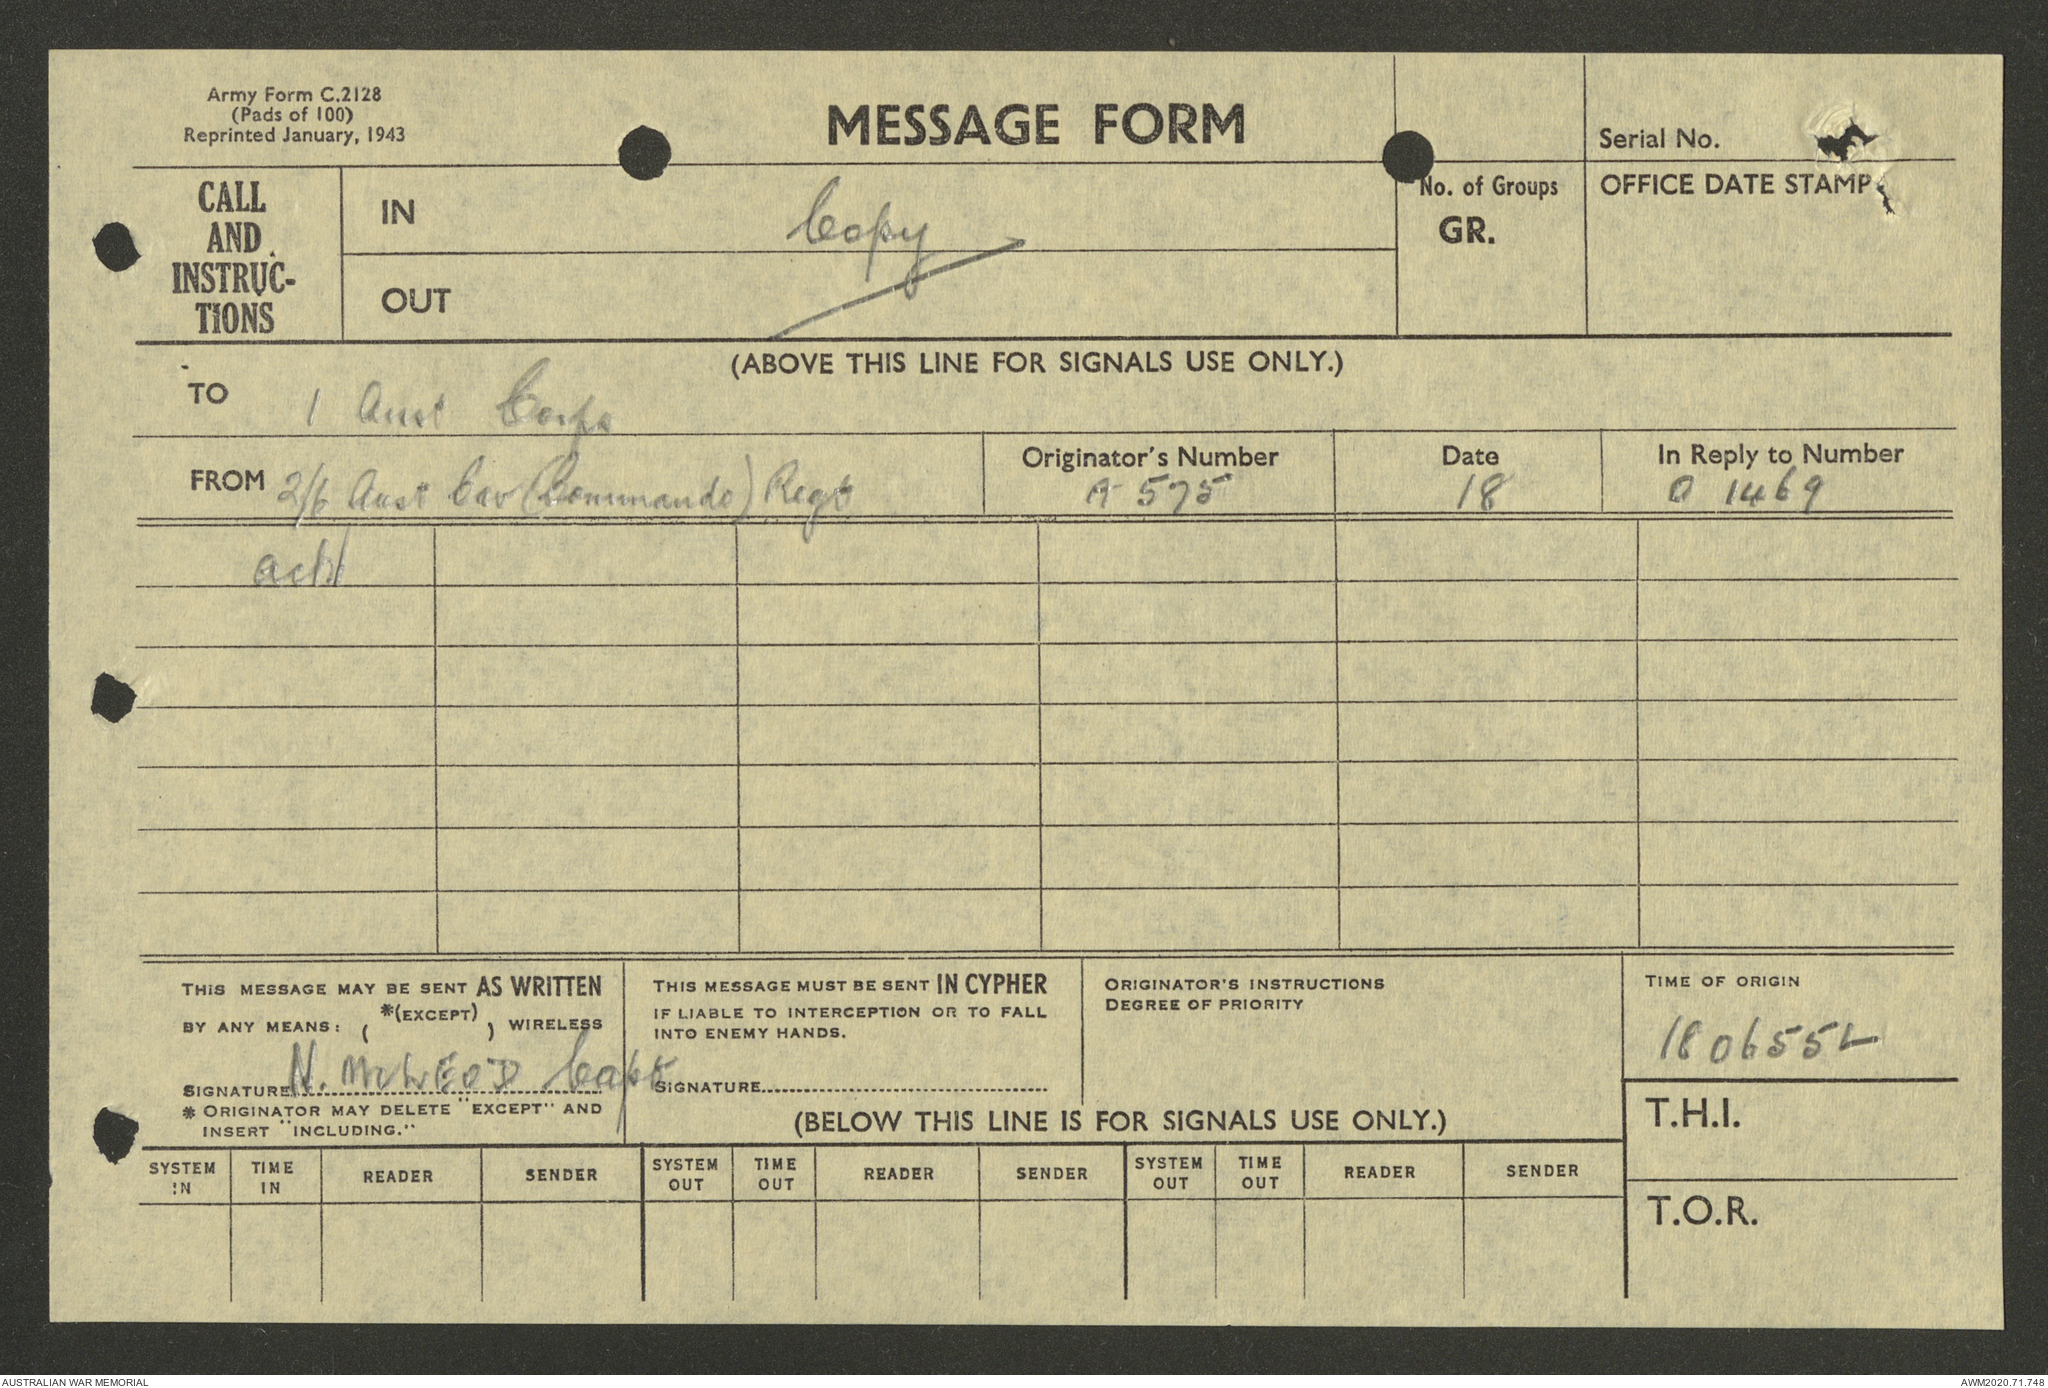 Army Form C.2128
(Pads of 100)
Reprinted January, 1943
MESSAGE FORM
Serial No.
CALL
AND
INSTRUC-
TIONS
IN
Copy
OUT
No. of Groups
GR.
OFFICE DATE STAMP
(ABOVE THIS LINE FOR SIGNALS USE ONLY.)
TO 1 Aust Corps
FROM 2/6 Aust Cav (Commando) Regt
Originator's Number
A 575
Date
18
In Reply to Number
O 1469
ack
THIS MESSAGE MAY BE SENT AS WRITTEN
BY ANY MEANS: ( *(EXCEPT) ) WIRELESS
SIGNATURE N. McLEOD Capt
* ORIGINATOR MAY DELETE "EXCEPT" AND
INSERT "INCLUDING."
THIS MESSAGE MUST BE SENT IN CYPHER
IF LIABLE TO INTERCEPTION OR TO FALL
INTO ENEMY HANDS.
SIGNATURE
ORIGINATOR'S INSTRUCTIONS
DEGREE OF PRIORITY
TIME OF ORIGIN
180655L
(BELOW THIS LINE IS FOR SIGNALS USE ONLY.)
T.H.I.
T.O.R.
SYSTEM IN TIME IN READER SENDER SYSTEM OUT TIME OUT READER SENDER SYSTEM OUT TIME OUT READER SENDER
AUSTRALIAN WAR MEMORIAL
AWM2020.71.748